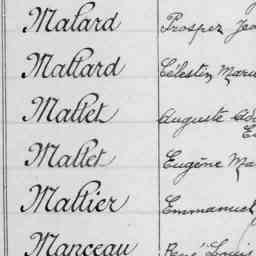 Malard Prosper
Mallard Célestin
Mallet Auguste
Mallet Eugène
Mallier Emmanuel
Manceau René Louis